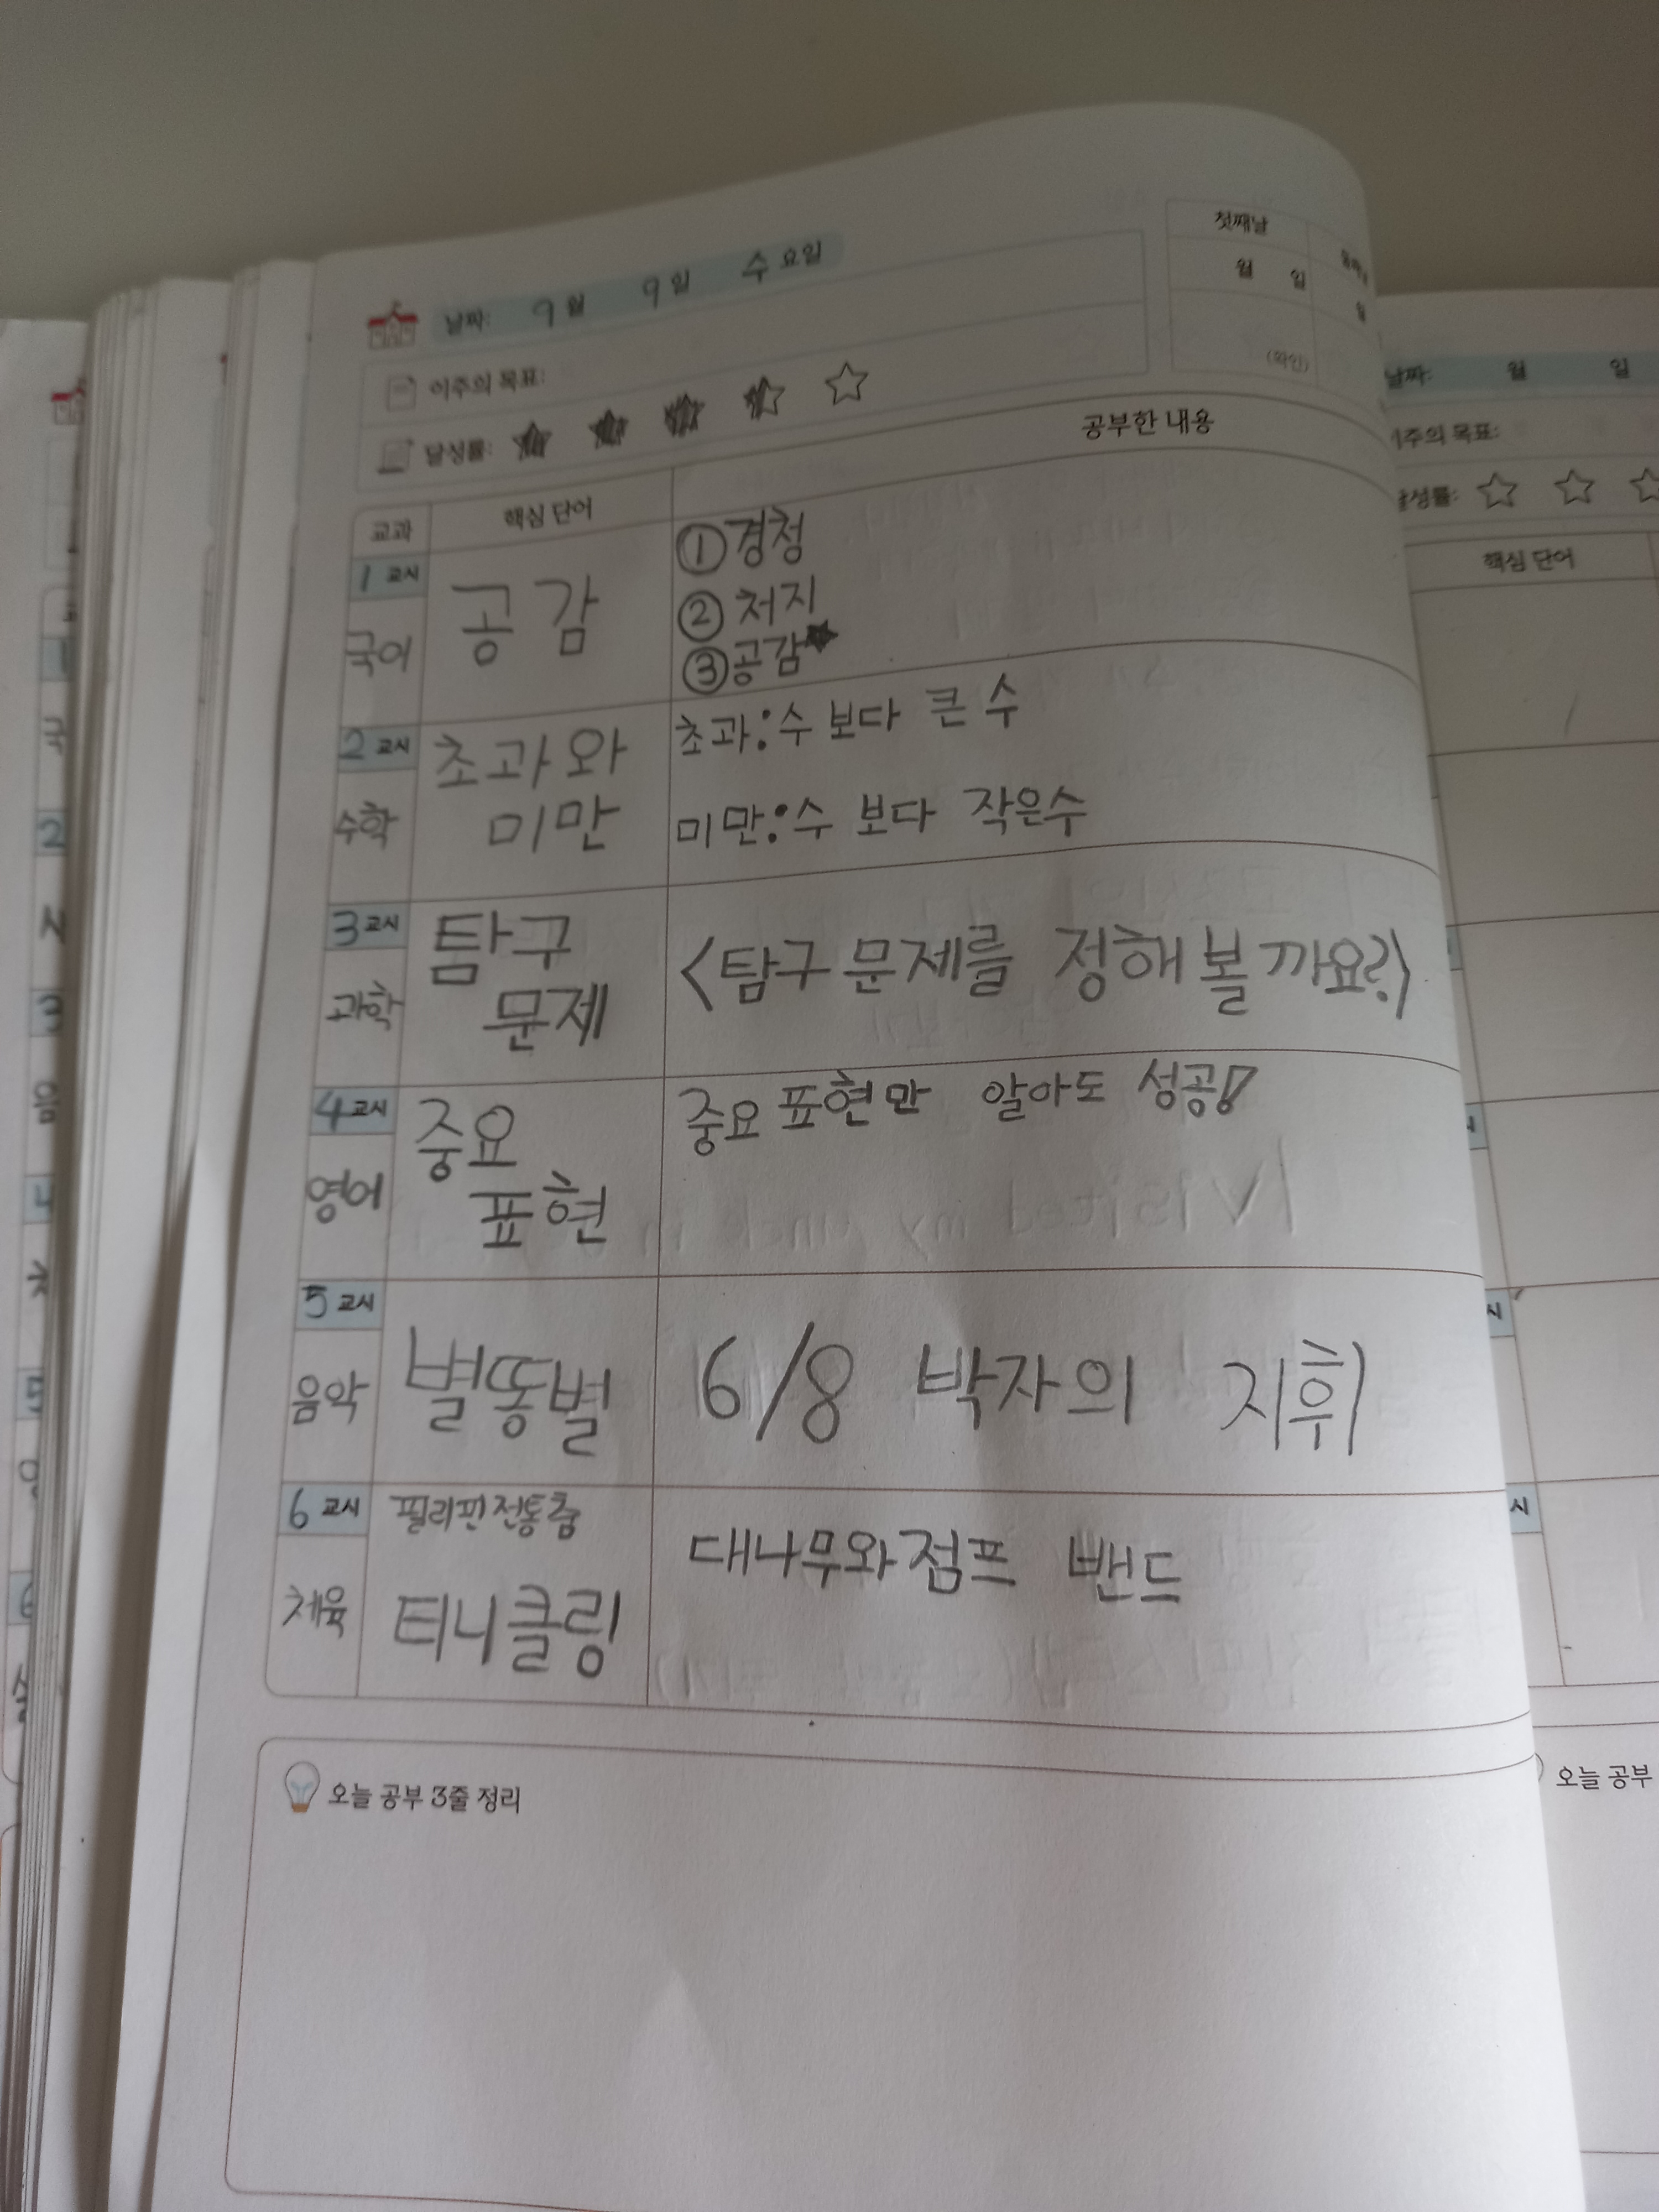 날짜: 9월 9일 수요일
이주의 목표:
달성률:
첫째날
월 일
(확인)
교과 핵심 단어 공부한 내용
1교시
국어
공감
①경청
②처지
③공감
2교시
수학
초과와
미만
초과:수 보다 큰 수
미만:수 보다 작은수
3교시
과학
탐구
문제
〈탐구 문제를 정해볼까요?〉
4교시
영어
중요
표현
중요 표현만 알아도 성공!
5교시
음악
별똥별
6/8 박자의 지휘
6교시
체육
필리핀전통춤
티니클링
대나무와점프 밴드
오늘 공부 3줄 정리
날짜: 월 일
주의 목표:
성률:
핵심 단어
시
시
오늘 공부
1
2
3
4
5
6